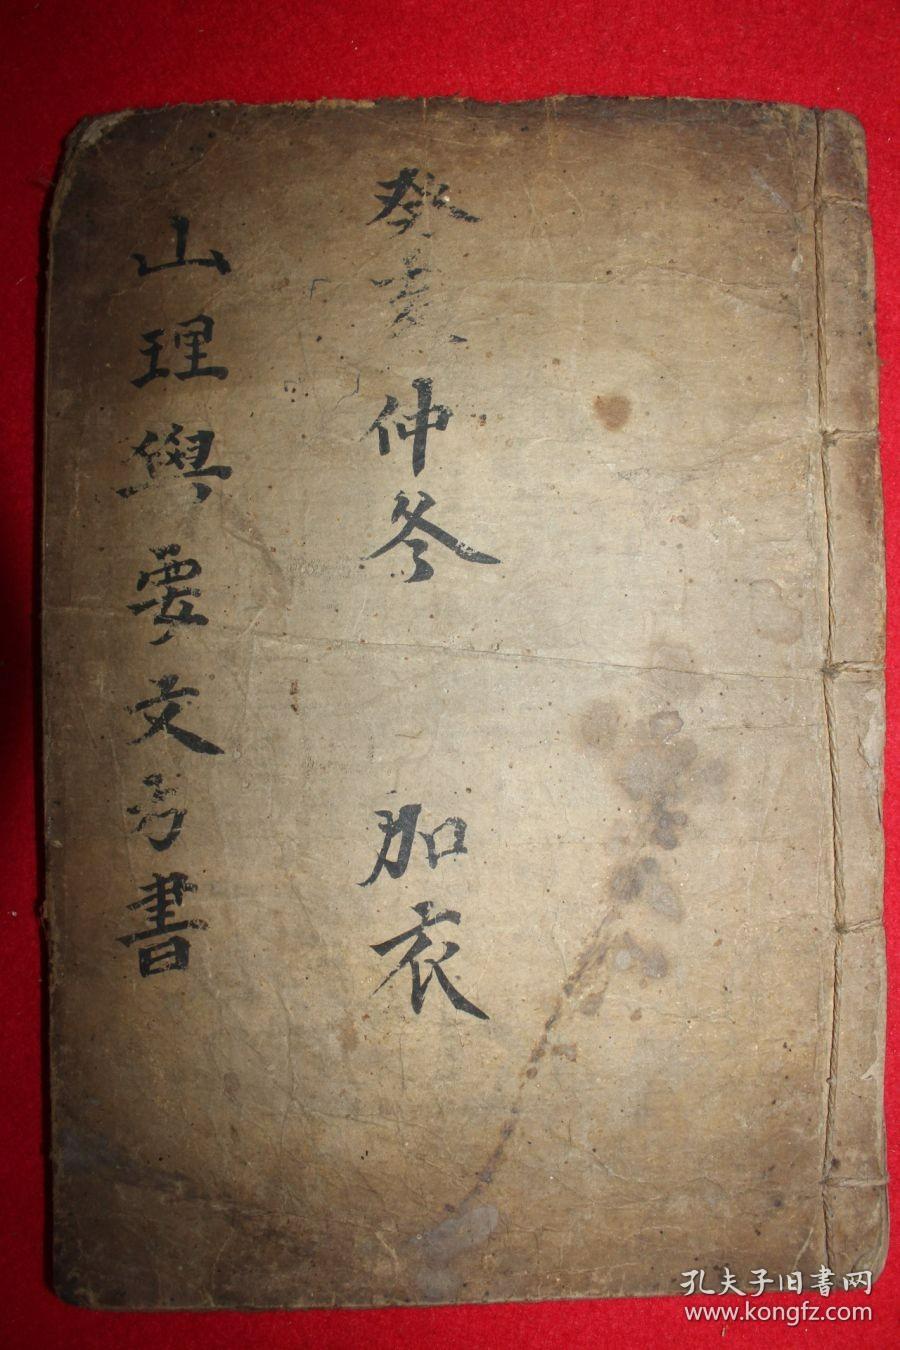 癸亥仲冬 加衣
山理與要文方書
孔夫子旧書网
www.kongfz.com